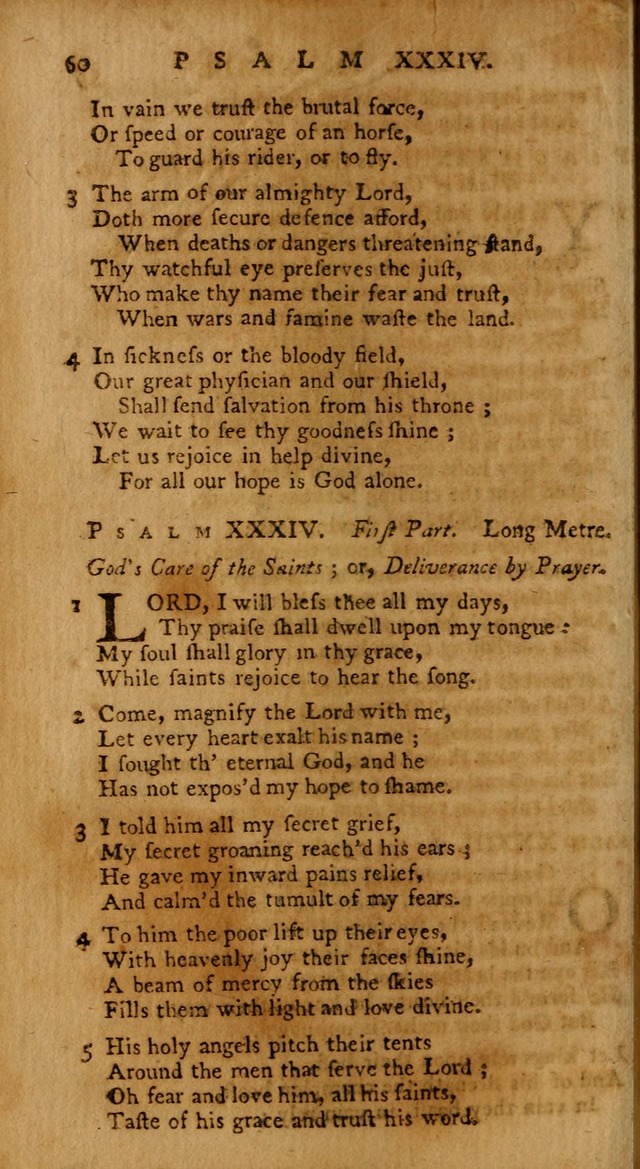 60 PSALM XXXIV.
In vain we truſt the brutal force,
Or ſpeed or courage of an horſe,
To guard his rider, or to fly.
3 The arm of our almighty Lord,
Doth more ſecure defence afford,
When deaths or dangers threatening ſtand,
Thy watchful eye preſerves the juſt,
Who make thy name their fear and truſt,
When wars and famine waſte the land.
4 In ſickneſs or the bloody field,
Our great phyſician and our ſhield,
Shall ſend ſalvation from his throne ;
We wait to ſee thy goodneſs ſhine ;
Let us rejoice in help divine,
For all our hope is God alone.
PSALM XXXIV. Firſt Part. Long Metre.
God's Care of the Saints ; or, Deliverance by Prayer.
1 LORD, I will bleſs thee all my days,
Thy praiſe ſhall dwell upon my tongue :
My ſoul ſhall glory in thy grace,
While ſaints rejoice to hear the ſong.
2 Come, magnify the Lord with me,
Let every heart exalt his name ;
I ſought th' eternal God, and he
Has not expos'd my hope to ſhame.
3 I told him all my ſecret grief,
My ſecret groaning reach'd his ears ;
He gave my inward pains relief,
And calm'd the tumult of my fears.
4 To him the poor lift up their eyes,
With heavenly joy their faces ſhine,
A beam of mercy from the ſkies
Fills them with light and love divine.
5 His holy angels pitch their tents
Around the men that ſerve the Lord ;
Oh fear and love him, all his ſaints,
Taſte of his grace and truſt his word.